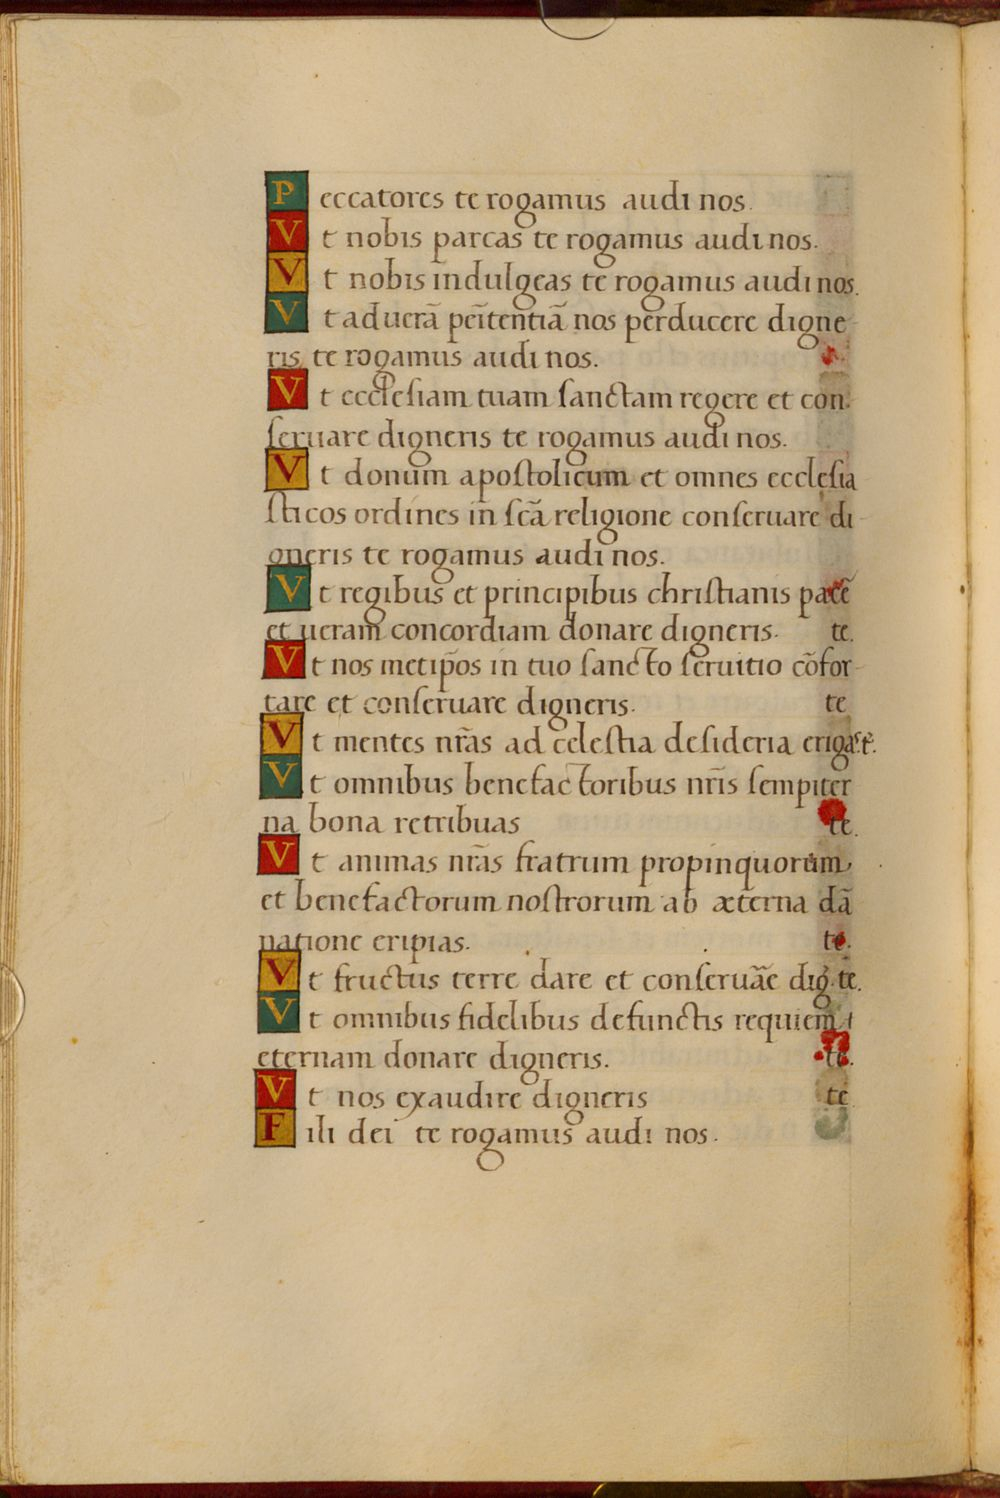 Peccatores te rogamus audi nos.
Vt nobis parcas te rogamus audi nos.
Vt nobis indulgeas te rogamus audi nos.
Vt ad uerā peītentiā nos perducere digne
ris te rogamus audi nos.
Vt ecclesiam tuam sanctam regere et con
seruare digneris te rogamus audi nos.
Vt donum apostolicum et omnes ecclesia
sticos ordines in sc̄a religione conseruare di
gneris te rogamus audi nos.
Vt regibus et principibus christianis pacē
et ueram concordiam donare digneris. te.
Vt nos metip̄os in tuo sancto seruitio cōfor
tare et conseruare digneris. te
Vt mentes nr̄as ad celestia desideria erigas te.
Vt omnibus benefactoribus nr̄is sempiter
na bona retribuas te.
Vt animas nr̄as fratrum propinquorum
et benefactorum nostrorum ab æterna dā
natione eripias. te.
Vt fructus terre dare et conseruār̄e dig. te.
Vt omnibus fidelibus defunctis requiem
eternam donare digneris. te.
Vt nos exaudire digneris te
Fili dei te rogamus audi nos.